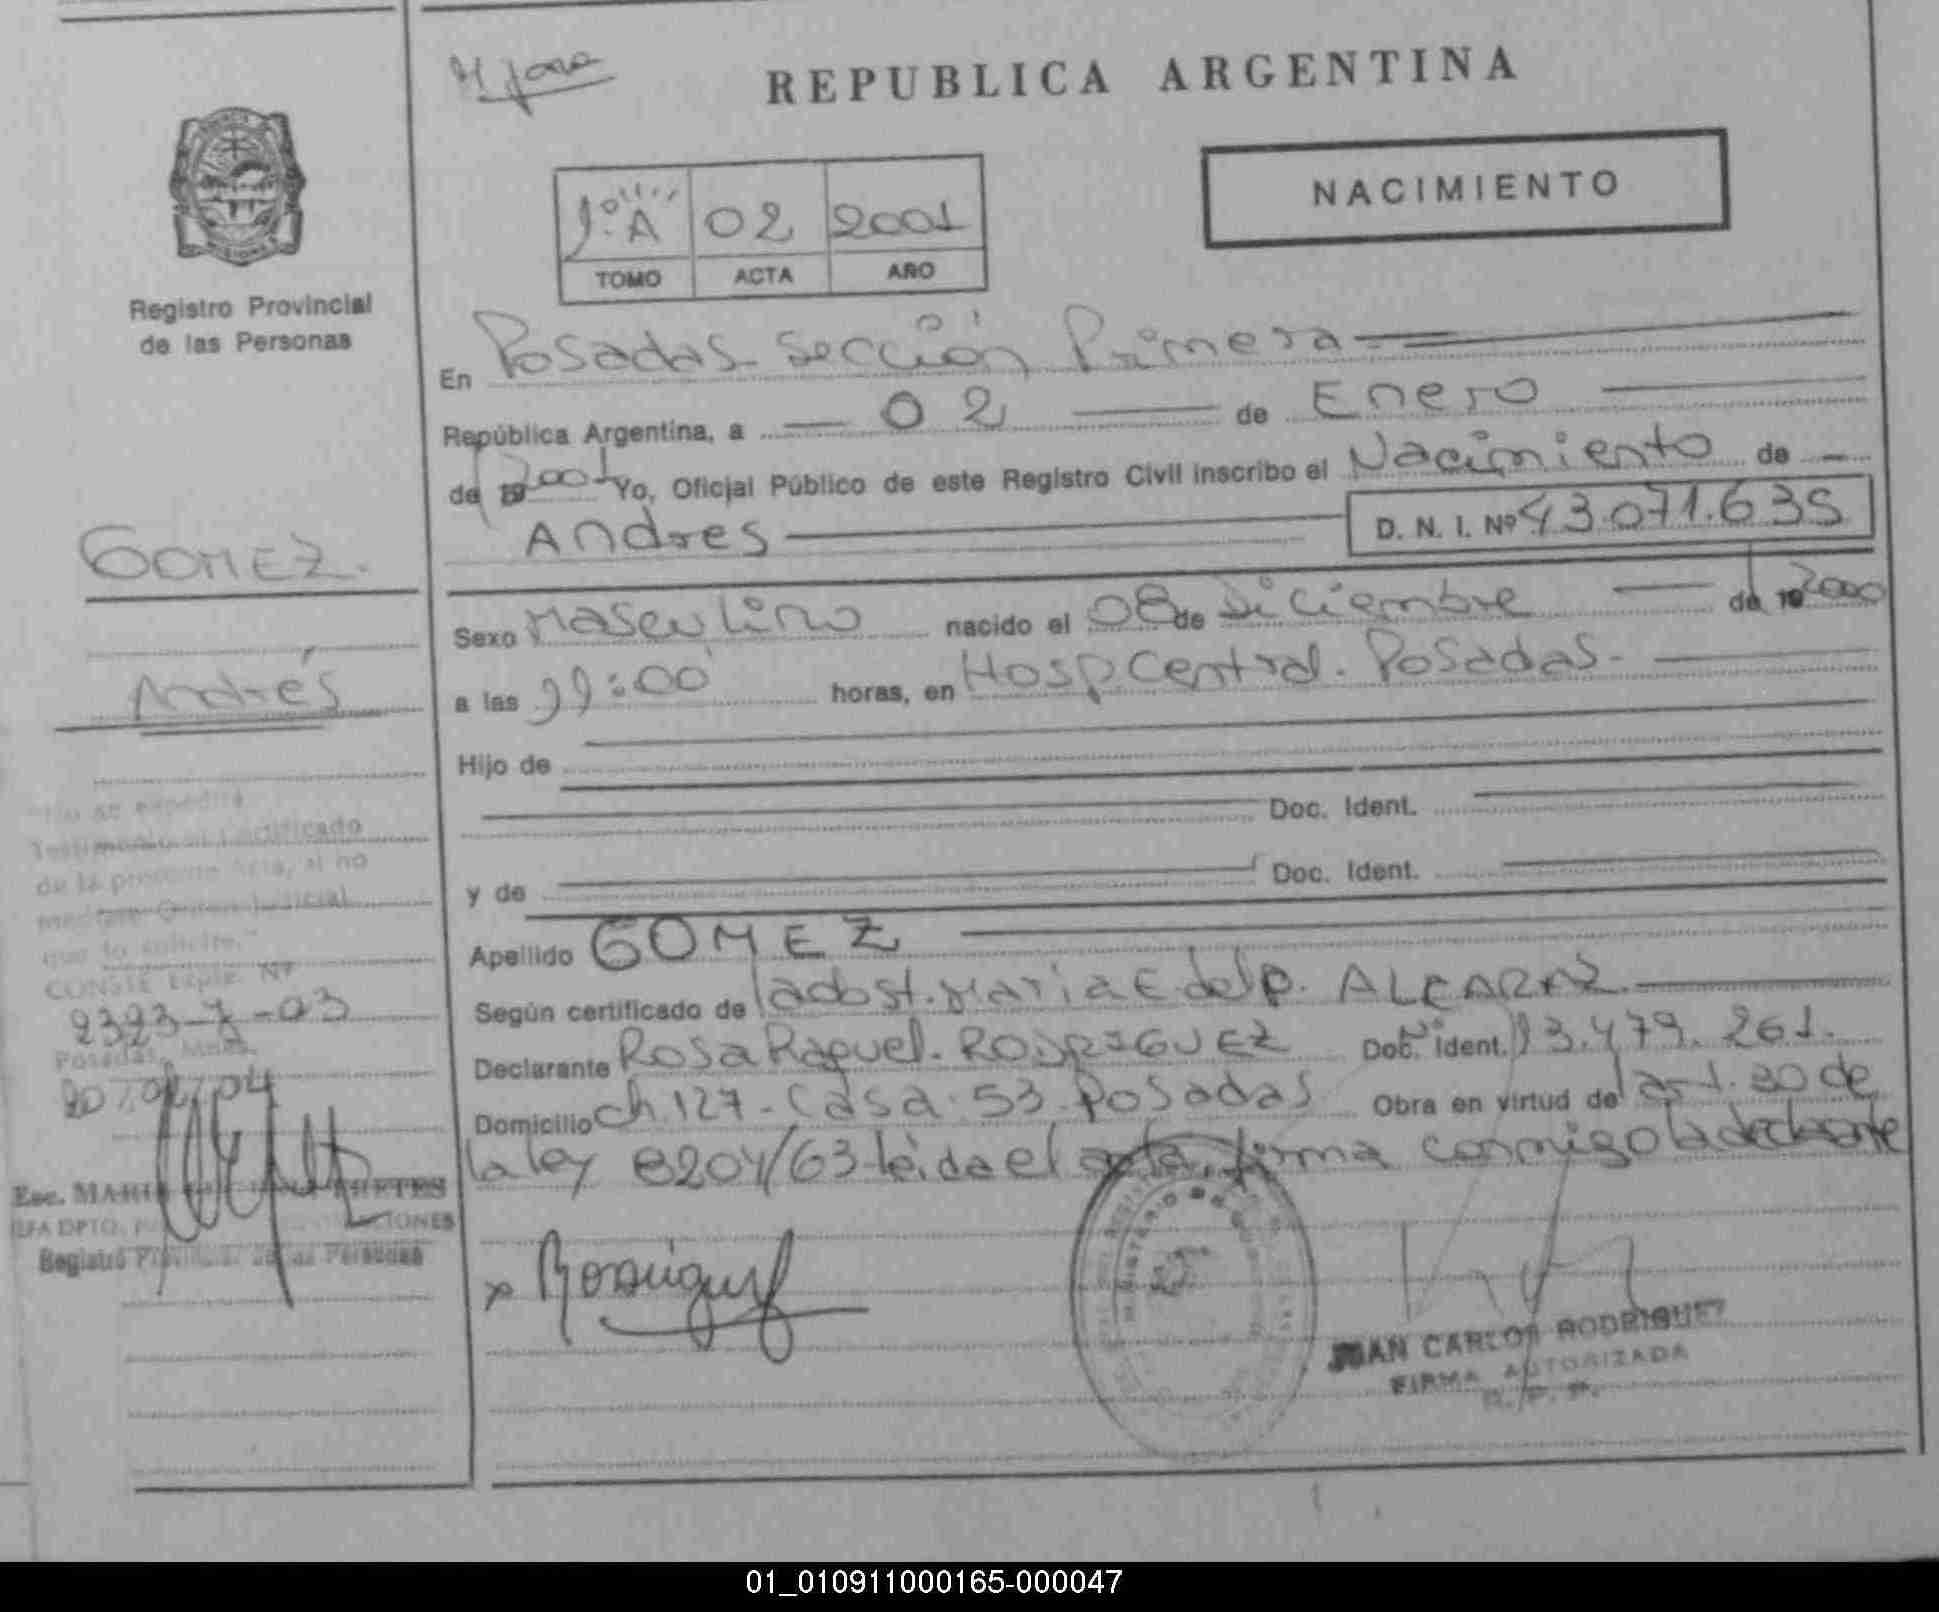 REPUBLICA ARGENTINA
NACIMIENTO
1º A 02 2001
TOMO ACTA AÑO
Registro Provincial
de las Personas
En Posadas Sección Primera
República Argentina, a 02 de Enero
de 19 2001 Yo, Oficial Público de este Registro Civil inscribo el Nacimiento de
Andres D. N. I. Nº 43.071.635
Sexo Masculino nacido el 08 de Diciembre de 19 2000
a las 11:00 horas, en Hosp Central. Posadas.
Hijo de
Doc. Ident.
y de Doc. Ident.
Apellido GOMEZ
Según certificado de la obst. Maria E. del P. ALCARAZ
Declarante Rosa Raquel. RODRIGUEZ Doc. Ident. Nº 13.479.261.
Domicilio Ch. 127 - Casa. 53 - Posadas Obra en virtud del art. 30 de
la ley 8204/63 leida el acta, firma conmigo la declarante
x Rodriguez
JUAN CARLOS RODRIGUEZ
FIRMA AUTORIZADA
R. P. P.
GOMEZ.
Andrés
"No se expedirá
Testimonio ni Certificado
de la presente Acta, si no
mediare Orden Judicial
que lo solicite."
CONSTE Expte. Nº
Posadas, Mnes.
Esc. MARIA
Registro Provincial de las Personas
01_010911000165-000047